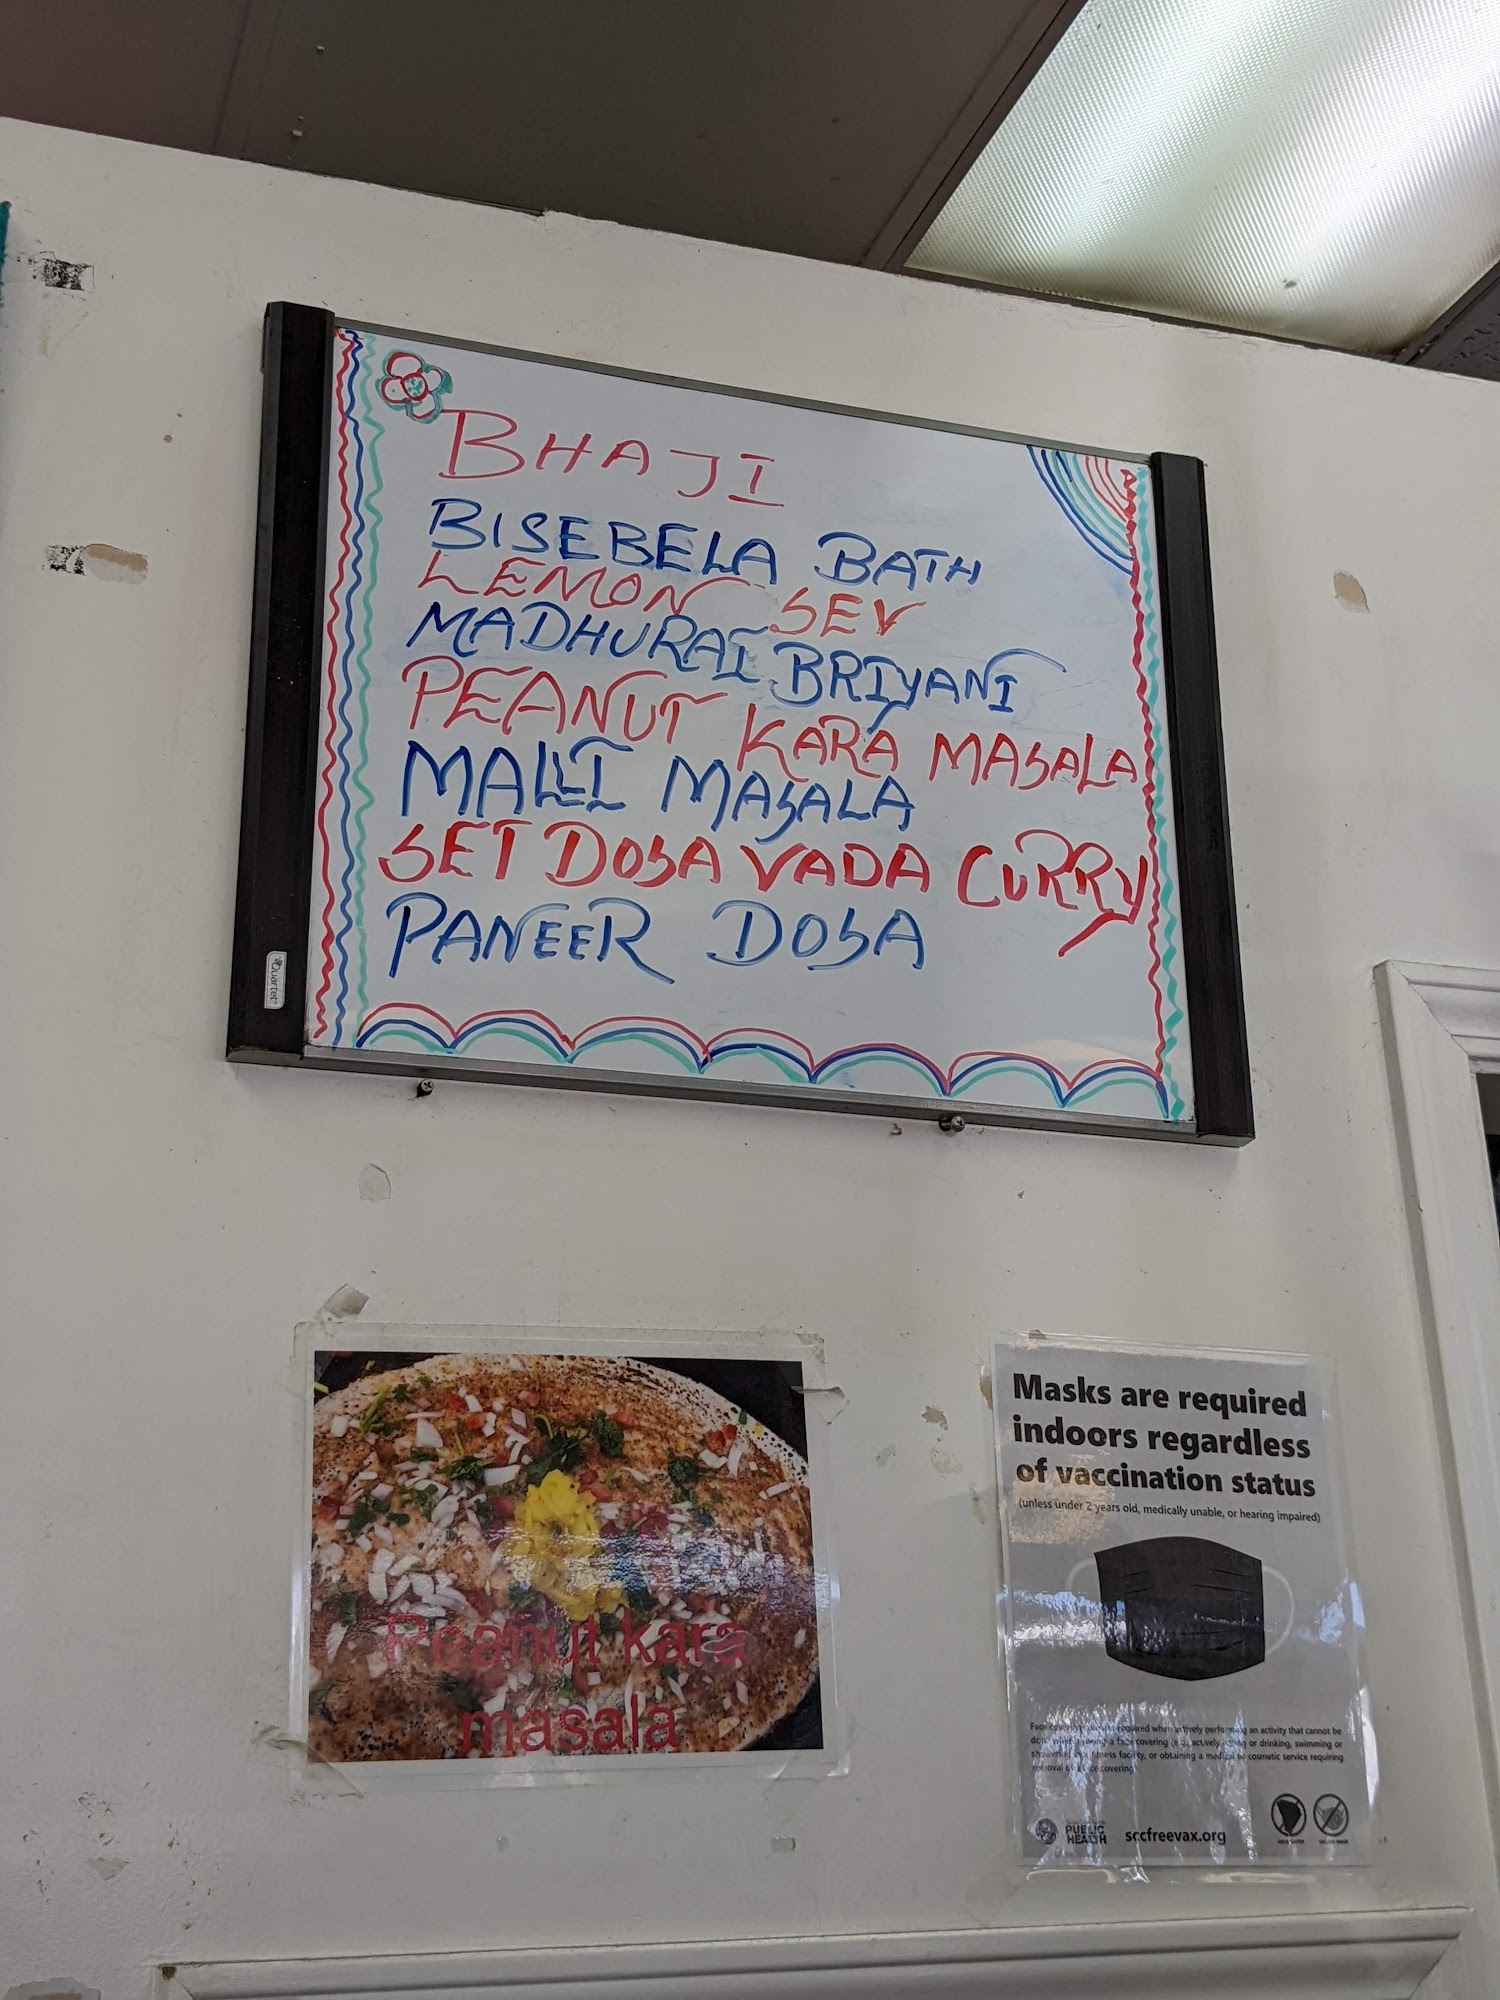 BHAJI
BISEBELA BATH
LEMON SEV
MADHURAI BRIYANI
PEANUT KARA MASALA
MALLI MASALA
SET DOSA VADA CURRY
PANEER DOSA
Quartet
Peanut kara
masala
Masks are required
indoors regardless
of vaccination status
(unless under 2 years old, medically unable, or hearing impaired)
required when actively performing an activity that cannot be
a face covering actively or drinking, swimming or
facility, or obtaining a medical or cosmetic service requiring
PUBLIC
HEALTH
sccfreevax.org